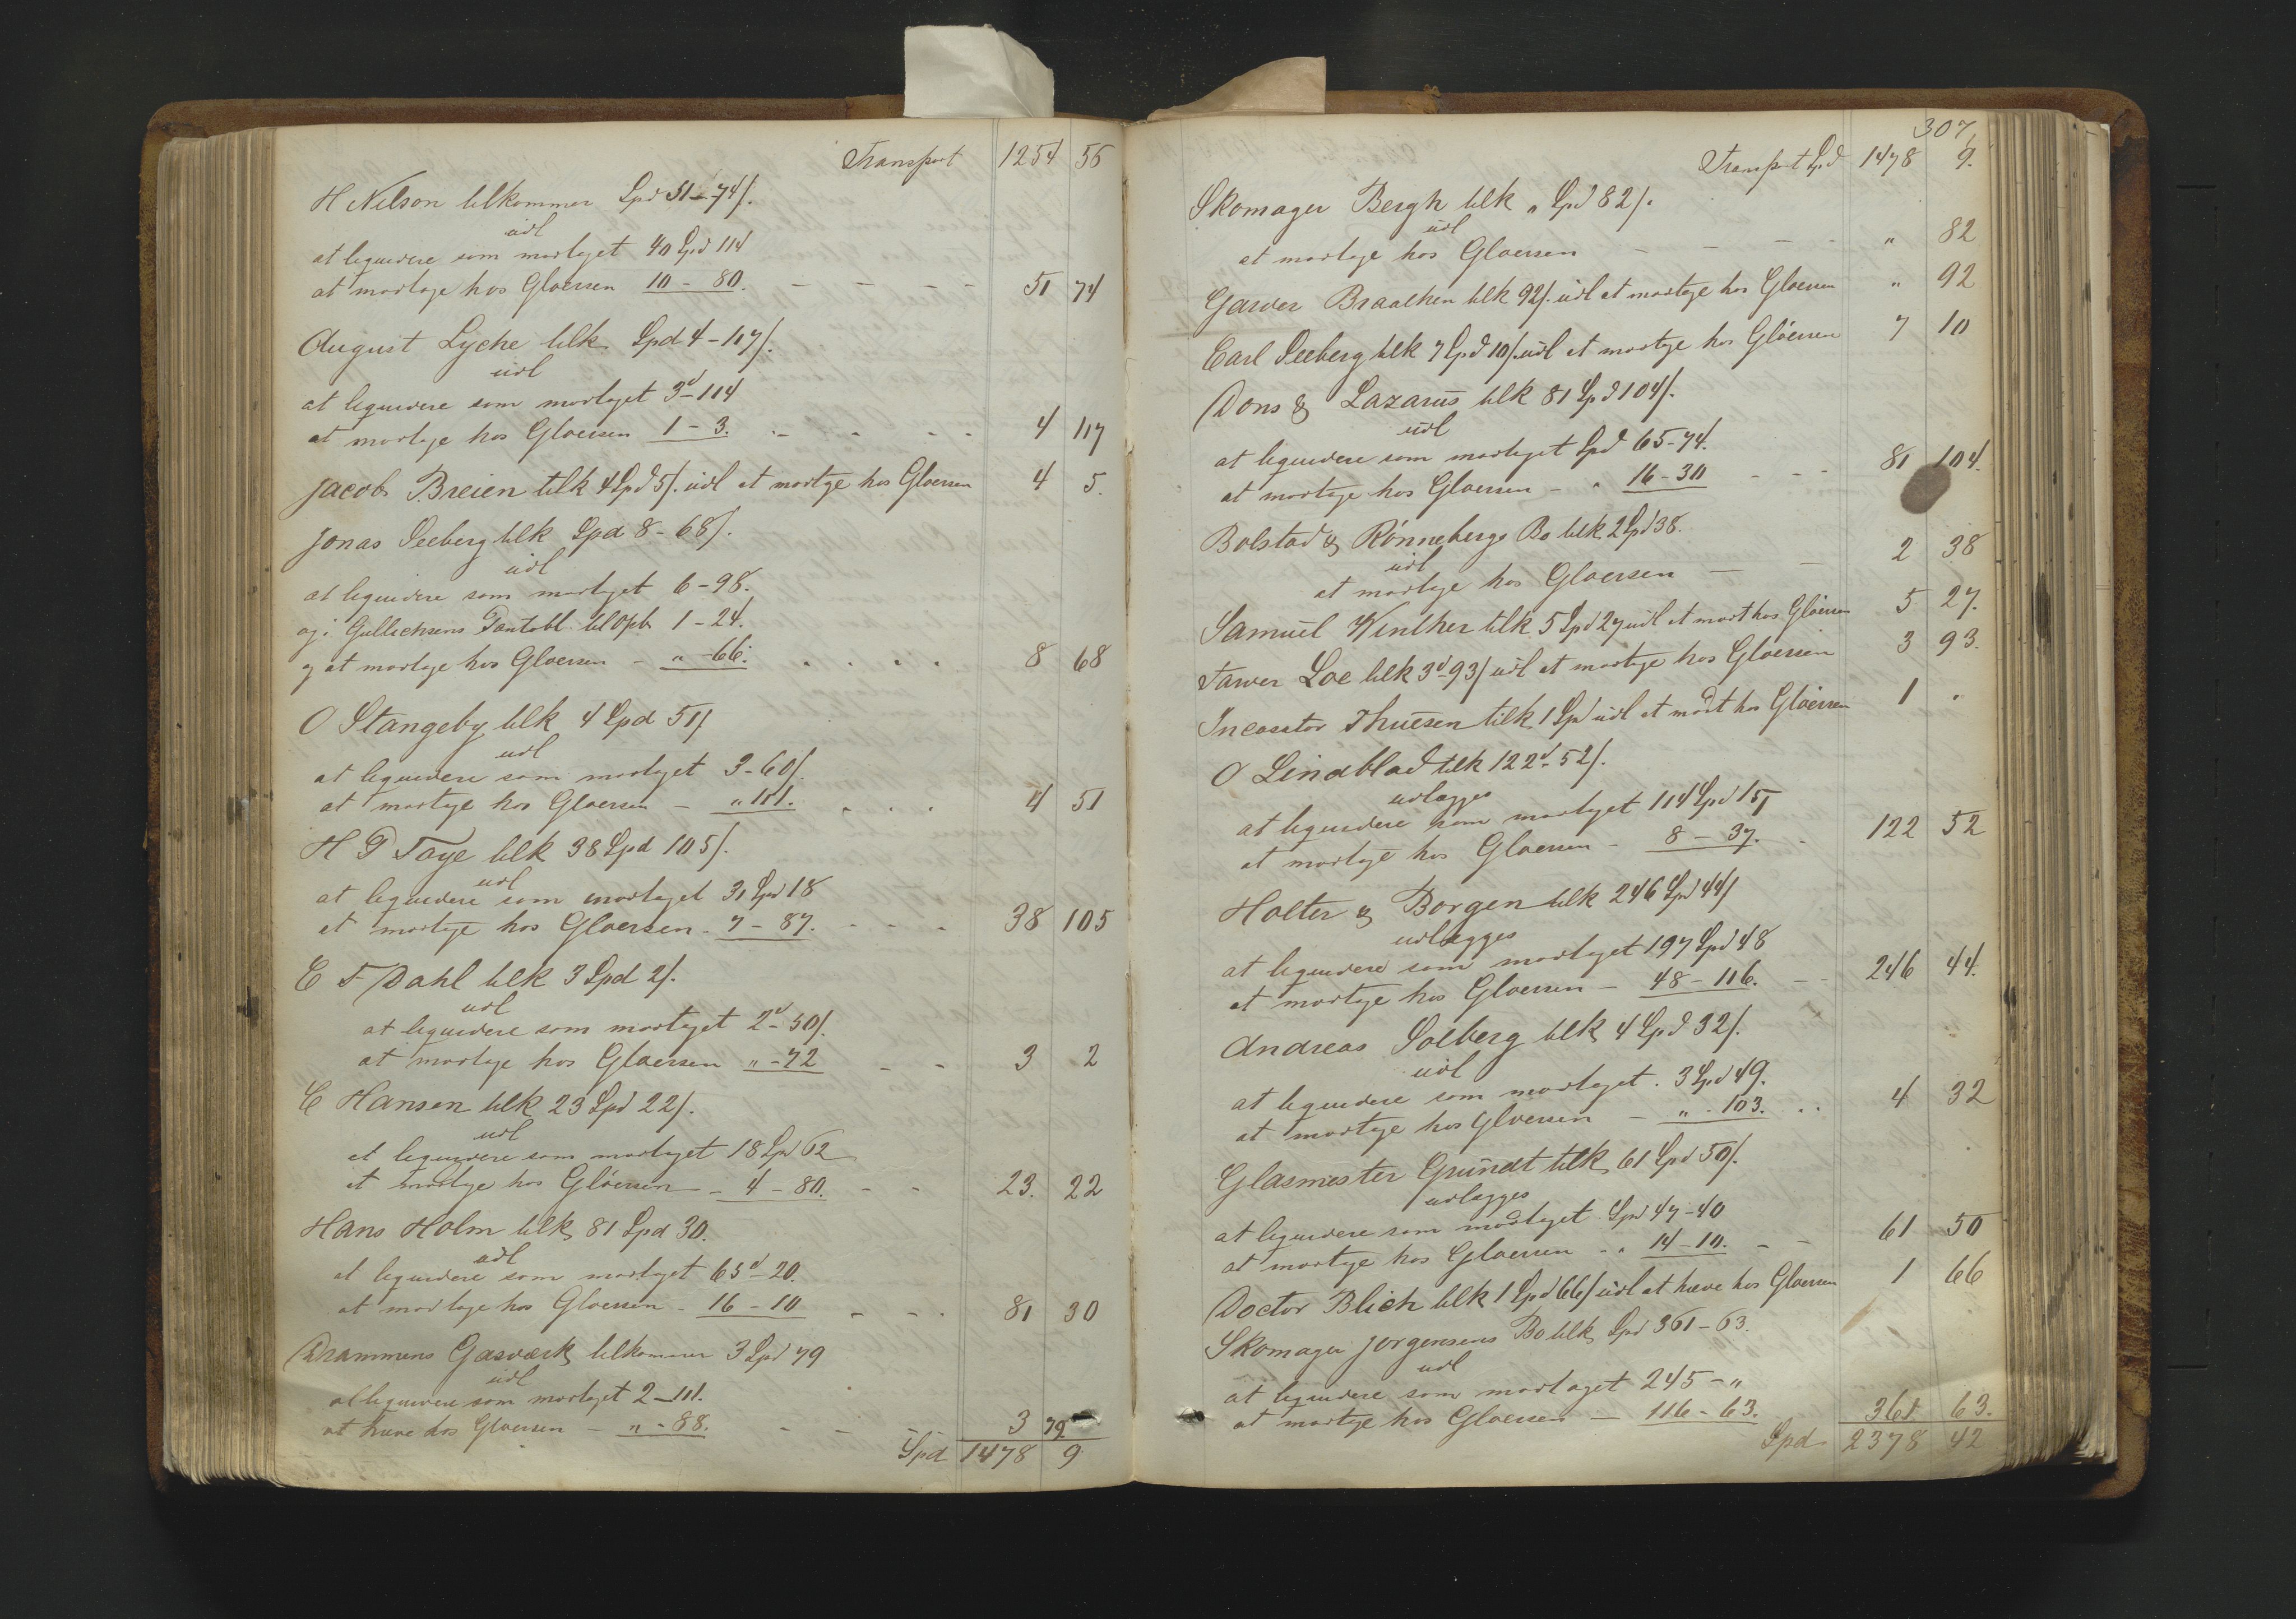 Transport 1254 56
H Nilson tilkommer Spd 51-74/.
udl
at liquidere som modtaget 40 Spd 114
at modtage hos Gloersen 10 - 80. - - - - - 51 74
August Lyche tilk Spd 4-117/.
udl
at liquidere som modtaget 3d-114
at modtage hos Gloersen 1 - 3. - - - - 4 117
Jacob Breien tilk 4 Spd 5/. udl at modtge hos Gloersen 4 5.
Jonas Seeberg tilk Spd 8-68/.
udl
at liquidere som modtaget 6-98.
og i Gullichsens Pantobl. til Opb 1-24.
og at modtage hos Gloersen - " -66. . . . . . 8 68
O Stangeby tilk 4 Spd 51/
udl
at liquidere som modtaget 3-60/.
at modtage hos Gloersen - " 111. . . . 4 51
H P Faye tilk 38 Spd 105/.
udl
at liquidere som modtaget 31 Spd 18
at modtage hos Gloersen - 7 - 87. - - - - 38 105
C F Dahl tilk 3 Spd 2/.
udl
at liquidere som modtaget 2d-50/.
at modtage hos Gloersen " -72 - - 3 2
C Hansen tilk 23 Spd 22/.
udl
at liquidere som modtaget 18 Spd 62
at modtage hos Gloersen - 4 - 80. - - 23. 22
Hans Holm tilk 81 Spd 30.
udl
at liquidere som modtaget 65d-20.
at modtage hos Gloersen - 16 - 10 - - - 81 30
Drammens Gasværk tilkommer 3 Spd 79
udl
at liquidere som modtaget 2-111.
at hæve hos Gloersen - " -88. - - - 3 79
Spd 1478 9
307
Transport Spd 1478 9.
Skomager Bergh tilk " Spd 82/.
udl
at modtage hos Gloersen - - - - " 82
Garver Braathen tilk 92/. udl at modtage hos Gloersen " 92
Carl Seeberg tilk 7 Spd 10/. udl at modtge hos Gloersen 7 10
Dons & Lazarus tilk 81 Spd 104/.
udl
at liquidere som modtaget Spd 65-74.
at modtage hos Gloersen - " 16-30 - - - 81 104.
Bolstad & Rønnebergs Bo tilk 2 Spd 38.
udl
at modtage hos Gloersen - - 2 38
Samuel Winther tilk 5 Spd 27 udl at modt hos Gloersen 5 27.
Farver Loe tilk 3d-93/ udl at modtage hos Gloersen 3 93.
Incasator Thuesen tilk 1 Spd udl at modt hos Gloersen 1 "
O Lindblad tilk 122d-52/.
udlægges
at liquidere som modtaget 114 Spd 15/
at modtage hos Gloersen - 8 - 37. . 122 52
Holter & Borgen tilk 246 Spd 44/
udlægges
at liquidere som modtaget 197 Spd 48
at modtage hos Gloersen - 48 - 116. - - 246 44.
Andreas Solberg tilk 4 Spd 32/.
udl
at liquidere som modtaget. 3 Spd 49.
at modtage hos Gloersen - " - 103. . . 4 32
Glasmester Grundt tilk 61 Spd 50/.
udlægges
at liquidere som modtaget Spd 47-40
at modtage hos Gloersen - " 14-10. - - 61 50
Doctor Blich tilk 1 Spd 66/ udl at hæve hos Gloersen 1 66
Skomager Jørgensens Bo tilk Spd 361-63.
udl
at liquidere som modtaget 245 - "
at modtage hos Gloersen - 116-63. 361 63.
Spd 2378 42